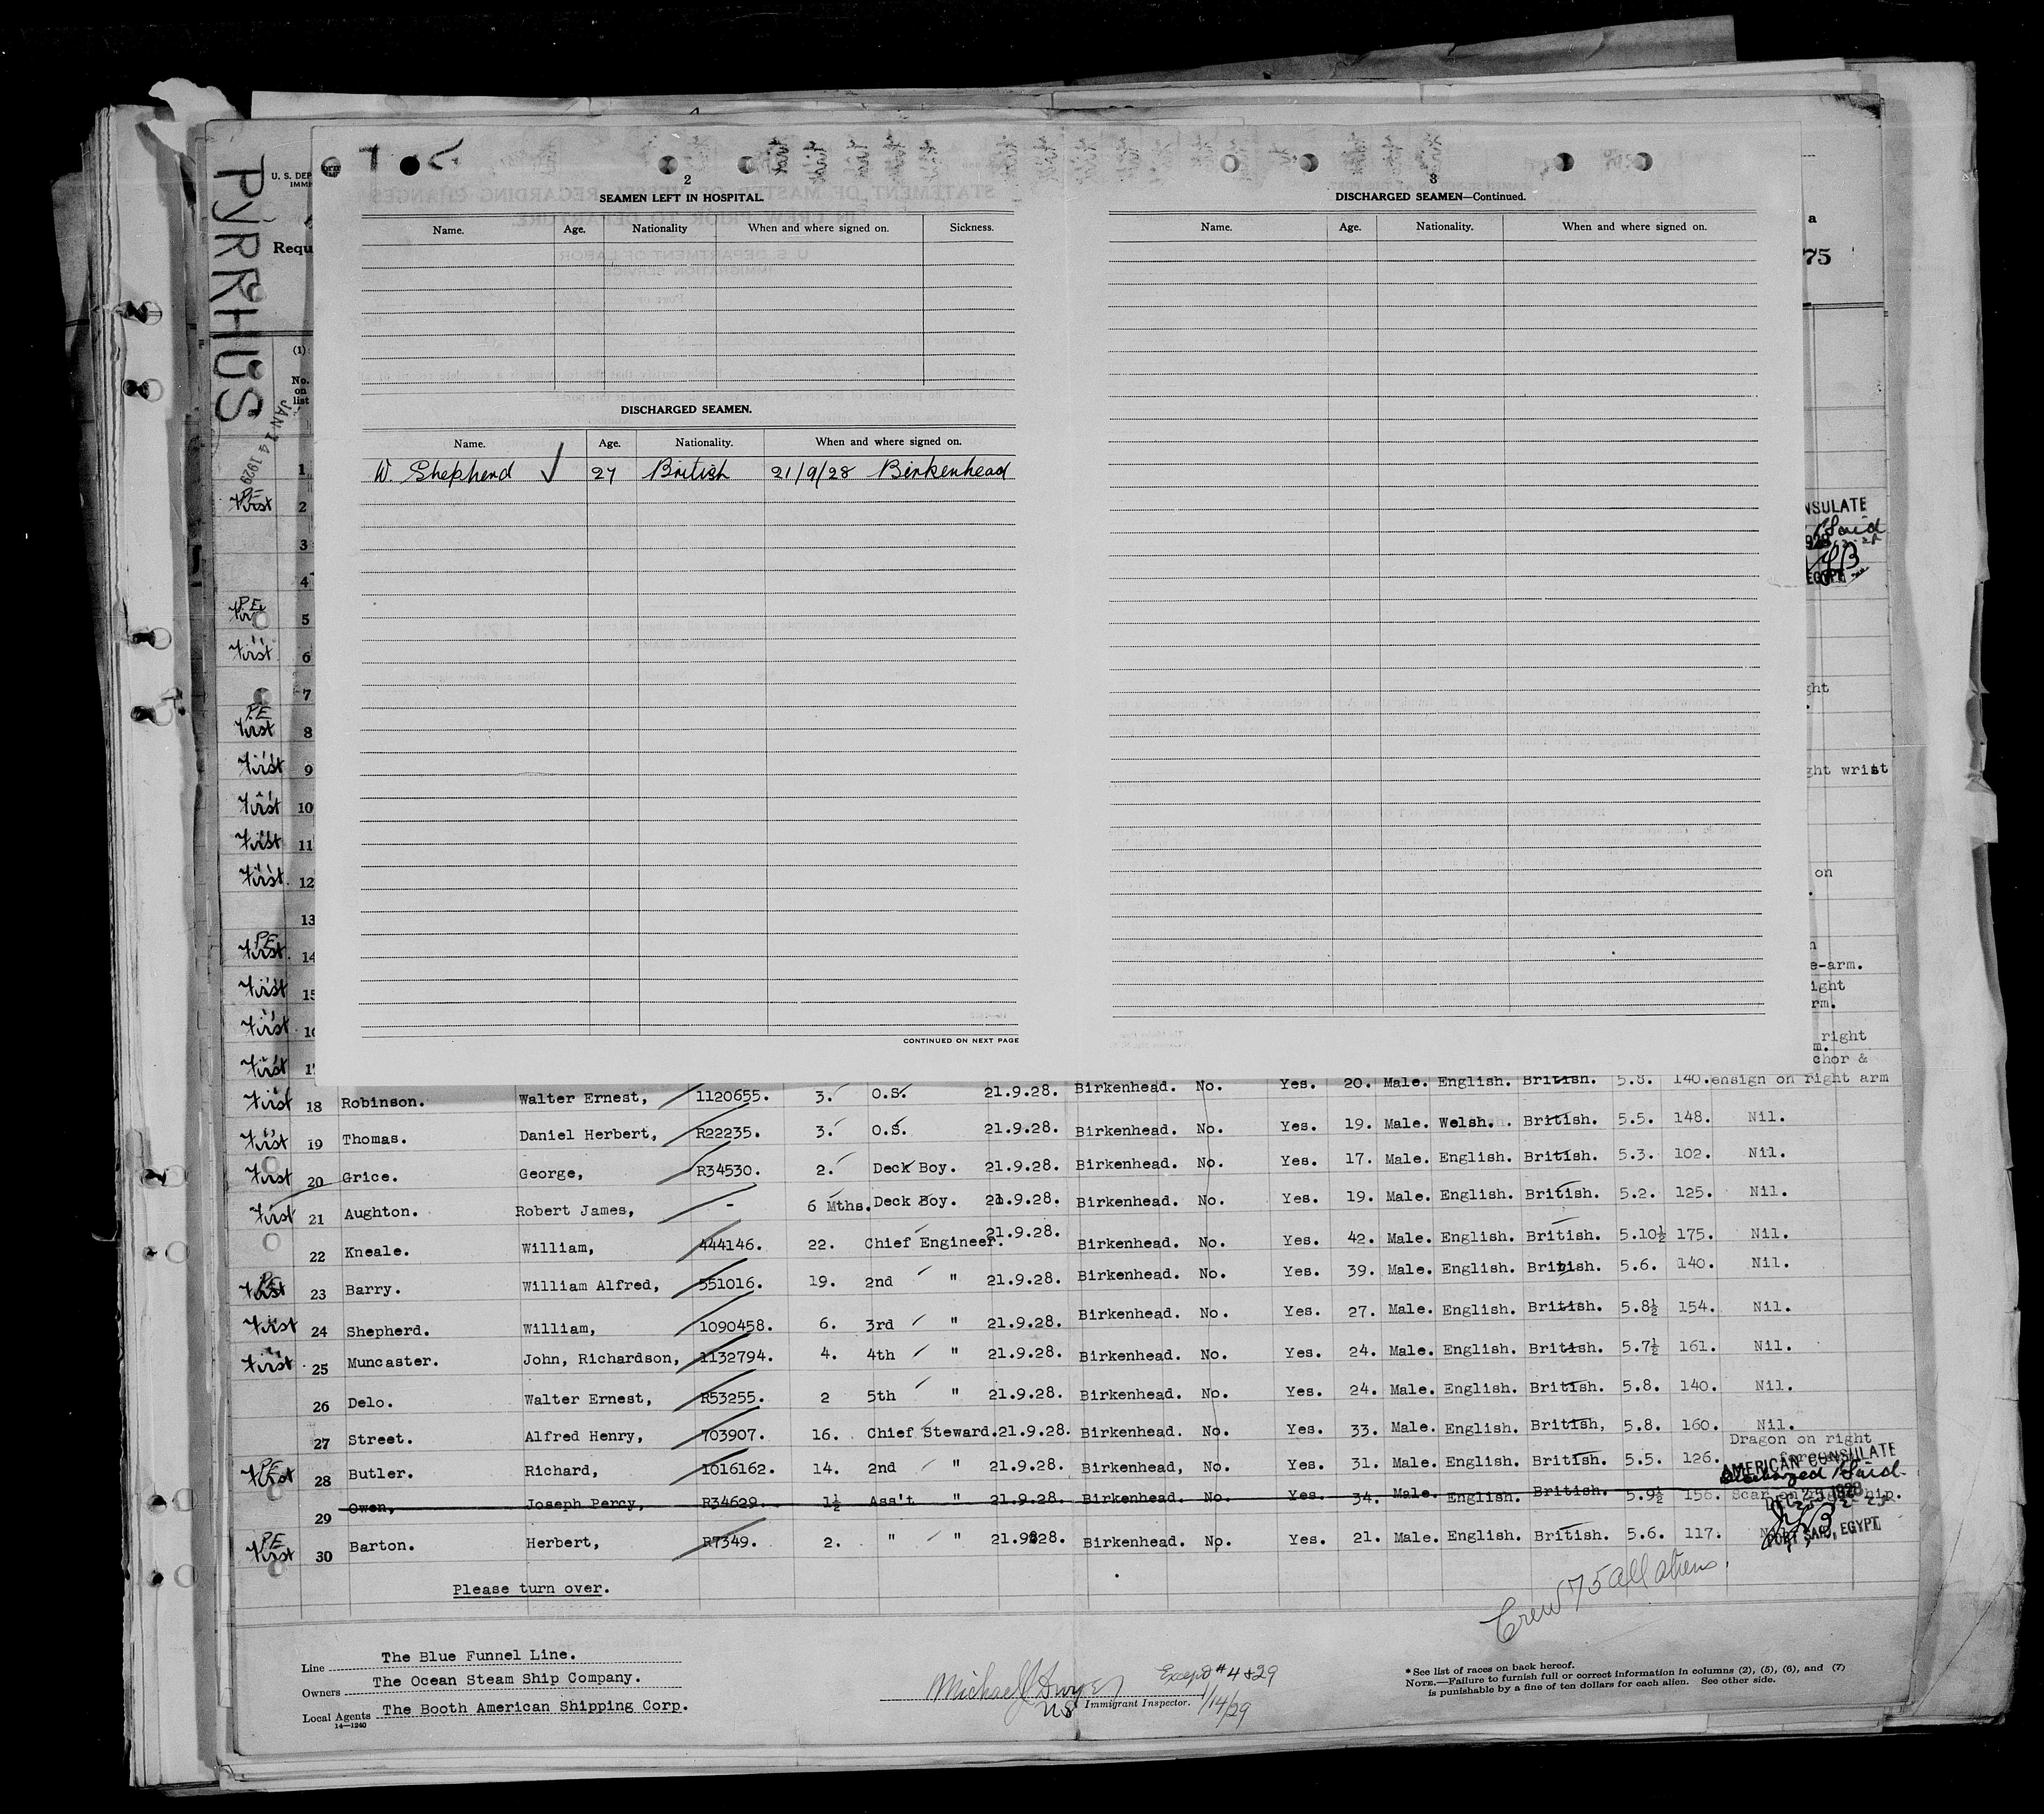 PYRRHUS
U. S. DEP
IMMI
Requ
a
75
(1)
No.
on
list
JAN 14 1929
2
SEAMEN LEFT IN HOSPITAL.
Name. Age. Nationality When and where signed on. Sickness.
DISCHARGED SEAMEN.
Name. Age. Nationality. When and where signed on.
W. Shepherd ✓ 27 British 21/9/28 Birkenhead
CONTINUED ON NEXT PAGE
3
DISCHARGED SEAMEN—Continued.
Name. Age. Nationality. When and where signed on.
1
PE First 2
3
4
PE 5
First 6
7
P.E First 8
First 9
First 10
First 11
First 12
13
PE First 14
First 15
First 16
First 17
NSULATE
Said
EGYPT
ght
ght wrist
on
e-arm.
ight
rm.
right
m.
chor &
First 18 Robinson. Walter Ernest, 1120655. 3. O.S. 21.9.28. Birkenhead. No. Yes. 20. Male. English. British. 5.8. 140. ensign on right arm
First 19 Thomas. Daniel Herbert, R22235. 3. O.S. 21.9.28. Birkenhead. No. Yes. 19. Male. Welsh. British. 5.5. 148. Nil.
First 20 Grice. George, R34530. 2. Deck Boy. 21.9.28. Birkenhead. No. Yes. 17. Male. English. British. 5.3. 102. Nil.
First 21 Aughton. Robert James, - 6 Mths. Deck Boy. 21.9.28. Birkenhead. No. Yes. 19. Male. English. British. 5.2. 125. Nil.
22 Kneale. William, 444146. 22. Chief Engineer. 21.9.28. Birkenhead. No. Yes. 42. Male. English. British. 5.10½ 175. Nil.
PE First 23 Barry. William Alfred, 551016. 19. 2nd " 21.9.28. Birkenhead. No. Yes. 39. Male. English. British. 5.6. 140. Nil.
First 24 Shepherd. William, 1090458. 6. 3rd " 21.9.28. Birkenhead. No. Yes. 27. Male. English. British. 5.8½ 154. Nil.
First 25 Muncaster. John, Richardson, 1132794. 4. 4th " 21.9.28. Birkenhead. No. Yes. 24. Male. English. British. 5.7½ 161. Nil.
26 Delo. Walter Ernest, R53255. 2 5th " 21.9.28. Birkenhead. No. Yes. 24. Male. English. British. 5.8. 140. Nil.
27 Street. Alfred Henry, 703907. 16. Chief Steward. 21.9.28. Birkenhead. No. Yes. 33. Male. English. British, 5.8. 160. Nil.
PE First 28 Butler. Richard, 1016162. 14. 2nd " 21.9.28. Birkenhead, No. Yes. 31. Male. English. British. 5.5. 126. Dragon on right
29 Owen, Joseph Percy, R34629. 1½ Ass't " 21.9.28. Birkenhead. No. Yes. 34. Male. English. British. 5.9½ 156.
AMERICAN CONSULATE
DEC 25 1928
PORT SAID, EGYPT
PE First 30 Barton. Herbert, R7349. 2. " " 21.9.28. Birkenhead. No. Yes. 21. Male. English. British. 5.6. 117.
Please turn over.
Crew 75 all aliens.
Line The Blue Funnel Line.
Owners The Ocean Steam Ship Company.
Local Agents The Booth American Shipping Corp.
14—1240
Michael J Dwyer Except #4 & 29
US Immigrant Inspector. 1/14/29
* See list of races on back hereof.
NOTE.—Failure to furnish full or correct information in columns (2), (5), (6), and (7)
is punishable by a fine of ten dollars for each alien. See other side.